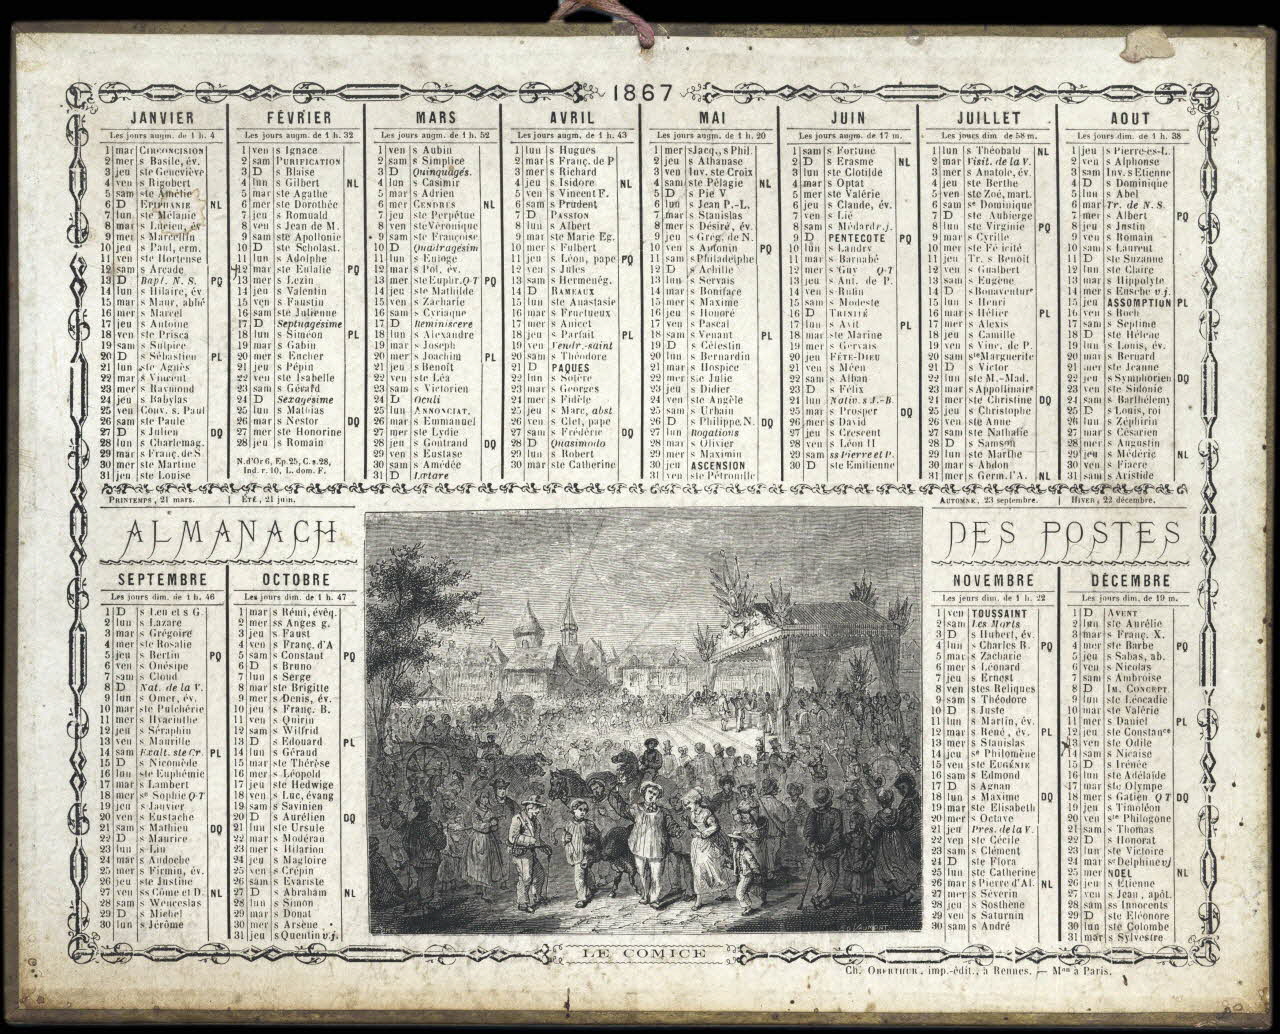 1867
JANVIER
Les jours augm. de 1 h. 4
1 mar CIRCONCISION
2 mer s Basile, év.
3 jeu ste Geneviève
4 ven s Rigobert
5 sam ste Amélie
6 D EPIPHANIE NL
7 lun ste Mélanie
8 mar s Lucien, év.
9 mer s Marcellin
10 jeu s Paul, erm.
11 ven ste Hortense
12 sam s Arcade
13 D Bapt. N. S. PQ
14 lun s Hilaire, év.
15 mar s Maur, abbé
16 mer s Marcel
17 jeu s Antoine
18 ven ste Prisca
19 sam s Sulpice
20 D s Sébastien PL
21 lun ste Agnès
22 mar s Vincent
23 mer s Raymond
24 jeu s Babylas
25 ven Conv. s. Paul
26 sam ste Paule
27 D s Julien DQ
28 lun s Charlemag.
29 mar s Franç. de S.
30 mer ste Martine
31 jeu ste Louise
FÉVRIER
Les jours augm. de 1 h. 32
1 ven s Ignace
2 sam PURIFICATION
3 D s Blaise
4 lun s Gilbert NL
5 mar ste Agathe
6 mer ste Dorothée
7 jeu s Romuald
8 ven s Jean de M.
9 sam ste Apollonie
10 D ste Scholast.
11 lun s Adolphe
12 mar ste Eulalie PQ
13 mer s Lezin
14 jeu s Valentin
15 ven s Faustin
16 sam ste Julienne
17 D Septuagésime
18 lun s Siméon PL
19 mar s Gabin
20 mer s Eucher
21 jeu s Pépin
22 ven ste Isabelle
23 sam s Gérard
24 D Sexagésime
25 lun s Mathias
26 mar s Nestor DQ
27 mer ste Honorine
28 jeu s Romain
N. d'Or 6, Ep. 25, C. s. 28,
Ind. r. 10, L. dom. F.
MARS
Les jours augm. de 1 h. 52
1 ven s Aubin
2 sam s Simplice
3 D Quinquagés.
4 lun s Casimir
5 mar s Adrien
6 mer CENDRES NL
7 jeu ste Perpétue
8 ven ste Véronique
9 sam ste Françoise
10 D Quadragésim
11 lun s Euloge
12 mar s Pol, év.
13 mer ste Euphr. Q-T PQ
14 jeu ste Mathilde
15 ven s Zacharie
16 sam s Cyriaque
17 D Reminiscere
18 lun s Alexandre
19 mar s Joseph
20 mer s Joachim PL
21 jeu s Benoît
22 ven ste Léa
23 sam s Victorien
24 D Oculi
25 lun ANNONCIAT.
26 mar s Emmanuel
27 mer ste Lydie
28 jeu s Gontrand DQ
29 ven s Eustase
30 sam s Amédée
31 D Lætare
AVRIL
Les jours augm. de 1 h. 43
1 lun s Hugues
2 mar s Franç. de P
3 mer s Richard
4 jeu s Isidore NL
5 ven s Vincent F.
6 sam s Prudent
7 D PASSION
8 lun s Albert
9 mar ste Marie Eg.
10 mer s Fulbert
11 jeu s Léon, pape PQ
12 ven s Jules
13 sam s Herménég.
14 D RAMEAUX
15 lun ste Anastasie
16 mar s Fructueux
17 mer s Anicet
18 jeu s Parfait PL
19 ven Vendr.-saint
20 sam s Théodore
21 D PAQUES
22 lun s Sotère
23 mar s Georges
24 mer s Fidèle
25 jeu s Marc, abst.
26 ven s Clet, pape
27 sam s Frédéric DQ
28 D Quasimodo
29 lun s Robert
30 mar ste Catherine
MAI
Les jours augm. de 1 h. 20
1 mer s Jacq., s Phil.
2 jeu s Athanase
3 ven Inv. ste Croix
4 sam ste Pélagie NL
5 D s Pie V
6 lun s Jean P.-L.
7 mar s Stanislas
8 mer s Désiré, év.
9 jeu s Grég. de N.
10 ven s Antonin PQ
11 sam s Philadelphe
12 D s Achille
13 lun s Servais
14 mar s Boniface
15 mer s Maxime
16 jeu s Honoré
17 ven s Pascal
18 sam s Venant PL
19 D s Célestin
20 lun s Bernardin
21 mar s Hospice
22 mer ste Julie
23 jeu s Didier
24 ven ste Angèle
25 sam s Urbain
26 D s Philippe N. DQ
27 lun Rogations
28 mar s Olivier
29 mer s Maximin
30 jeu ASCENSION
31 ven ste Pétronille
JUIN
Les jours augm. de 17 m.
1 sam s Fortuné
2 D s Erasme NL
3 lun ste Clotilde
4 mar s Optat
5 mer ste Valérie
6 jeu s Claude, év.
7 ven s Lié
8 sam s Médard v. j.
9 D PENTECOTE PQ
10 lun s Landry
11 mar s Barnabé
12 mer s Guy Q-T
13 jeu s Ant. de P.
14 ven s Rufin
15 sam s Modeste
16 D TRINITÉ
17 lun s Avit PL
18 mar ste Marine
19 mer s Gervais
20 jeu FÊTE-DIEU
21 ven s Méen
22 sam s Alban
23 D s Félix
24 lun Nativ. s J.-B.
25 mar s Prosper DQ
26 mer s David
27 jeu s Crescent
28 ven s Léon II
29 sam ss Pierre et P.
30 D ste Emilienne
JUILLET
Les jours dim. de 58 m.
1 lun s Théobald NL
2 mar Visit. de la V.
3 mer s Anatole, év.
4 jeu ste Berthe
5 ven ste Zoé, mart.
6 sam se Dominique
7 D ste Aubierge
8 lun ste Virginie PQ
9 mar s Cyrille
10 mer ste Félicité
11 jeu Tr. s Benoît
12 ven s Gualbert
13 sam s Eugène
14 D s Bonaventure
15 lun s Henri
16 mar s Hélier PL
17 mer s Alexis
18 jeu s Camille
19 ven s Vinc. de P.
20 sam ste Marguerite
21 D s Victor
22 lun ste M.-Mad.
23 mar s Appollinaire
24 mer ste Christine DQ
25 jeu s Christophe
26 ven ste Anne
27 sam ste Nathalie
28 D s Samson
29 lun ste Marthe
30 mar s Abdon
31 mer s Germ. l'A. NL
AOUT
Les jours dim. de 1 h. 38
1 jeu s Pierre-ès-L.
2 ven s Alphonse
3 sam Inv. s Etienne
4 D s Dominique
5 lun s Abel
6 mar Tr. de N. S.
7 mer s Albert PQ
8 jeu s Justin
9 ven s Romain
10 sam s Laurent
11 D ste Suzanne
12 lun ste Claire
13 mar s Hippolyte
14 mer s Eusèbe v. j.
15 jeu ASSOMPTION PL
16 ven s Roch
17 sam s Septime
18 D ste Hélène
19 lun s Louis, év.
20 mar s Bernard
21 mer ste Jeanne
22 jeu s Symphorien DQ
23 ven ste Sidonie
24 sam s Barthélemy
25 D s Louis, roi
26 lun s Zéphirin
27 mar s Césarien
28 mer s Augustin
29 jeu s Médéric NL
30 ven s Fiacre
31 sam s Aristide
PRINTEMPS, 21 mars. | ÉTÉ, 21 juin.
AUTOMNE, 23 septembre. | HIVER, 22 décembre.
ALMANACH DES POSTES
SEPTEMBRE
Les jours dim. de 1 h. 46
1 D s Leu et s G.
2 lun s Lazare
3 mar s Grégoire
4 mer ste Rosalie
5 jeu s Bertin PQ
6 ven s Onésipe
7 sam s Cloud
8 D Nat. de la V.
9 lun s Omer, év.
10 mar ste Pulchérie
11 mer s Hyacinthe
12 jeu s Séraphin
13 ven s Maurille
14 sam Exalt. ste Cr. PL
15 D s Nicomède
16 lun ste Euphémie
17 mar s Lambert
18 mer se Sophie Q-T
19 jeu s Janvier
20 ven s Eustache
21 sam s Mathieu DQ
22 D s Maurice
23 lun s Lin
24 mar s Andoche
25 mer s Firmin, év.
26 jeu ste Justine
27 ven ss Côme et D. NL
28 sam s Wenceslas
29 D s Michel
30 lun s Jérôme
OCTOBRE
Les jours dim. de 1 h. 47
1 mar s Rémi, évêq.
2 mer ss Anges g.
3 jeu s Faust
4 ven s Franç. d'A
5 sam s Constant PQ
6 D s Bruno
7 lun s Serge
8 mar ste Brigitte
9 mer s Denis, év.
10 jeu s Franç. B.
11 ven s Quirin
12 sam s Wilfrid
13 D s Edouard PL
14 lun s Géraud
15 mar ste Thérèse
16 mer s Léopold
17 jeu ste Hedwige
18 ven s Luc, évang
19 sam s Savinien
20 D s Aurélien DQ
21 lun ste Ursule
22 mar s Modéran
23 mer s Hilarion
24 jeu s Magloire
25 ven s Crépin
26 sam s Evariste
27 D s Abraham NL
28 lun s Simon
29 mar s Donat
30 mer s Arsène
31 jeu s Quentin v. j.
NOVEMBRE
Les jours dim. de 1 h. 22
1 ven TOUSSAINT
2 sam Les Morts
3 D s Hubert, év.
4 lun s Charles B. PQ
5 mar s Zacharie
6 mer s Léonard
7 jeu s Ernest
8 ven stes Reliques
9 sam s Théodore
10 D s Juste
11 lun s Martin, év.
12 mar s René, év. PL
13 mer s Stanislas
14 jeu se Philomène
15 ven ste EUGÉNIE
16 sam s Edmond
17 D s Agnan
18 lun s Maxime DQ
19 mar ste Elisabeth
20 mer s Octave
21 jeu Prés. de la V.
22 ven ste Cécile
23 sam s Clément
24 D ste Flora
25 lun ste Catherine
26 mar s Pierre d'Al. NL
27 mer s Séverin
28 jeu s Sosthène
29 ven s Saturnin
30 sam s André
DÉCEMBRE
Les jours dim. de 19 m.
1 D AVENT
2 lun ste Aurélie
3 mar s Franç. X.
4 mer ste Barbe PQ
5 jeu s Sabas, ab.
6 ven s Nicolas
7 sam s Ambroise
8 D IM. CONCEPT
9 lun ste Léocadie
10 mar ste Valérie
11 mer s Daniel PL
12 jeu ste Constance
13 ven ste Odile
14 sam s Nicaise
15 D s Irénée
16 lun ste Adélaïde
17 mar ste Olympe
18 mer s Gatien Q T DQ
19 jeu s Timoléon
20 ven ste Philogone
21 sam s Thomas
22 D s Honorat
23 lun ste Victoire
24 mar se Delphine v j
25 mer NOEL NL
26 jeu s Étienne
27 ven s Jean, apôt.
28 sam ss Innocents
29 D ste Eléonore
30 lun ste Colombe
31 mar s Sylvestre
LE COMICE
Ch. OBERTHUR, imp.-édit., à Rennes. — Mon à Paris.